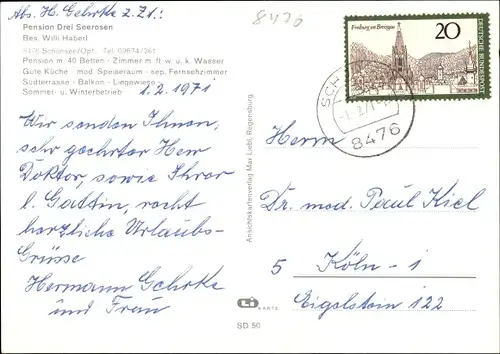 Abs. H. Gehrke z. Zt.:
8476
Pension Drei Seerosen
Bes. Willi Haberl
8476 Schönsee/Opf. Tel. 09674/261
Pension m. 40 Betten - Zimmer m. fl. w. u. k. Wasser
Gute Küche - mod. Speiseraum - sep. Fernsehzimmer
Südterrasse - Balkon - Liegewiese
Sommer- u. Winterbetrieb
1.2.1971
Wir senden Ihnen,
sehr geehrter Herr
Doktor, sowie Ihrer
l. Gattin, recht
herzliche Urlaubs-
Grüsse
Hermann Gehrke
und Frau
Ansichtskartenverlag Max Liebl, Regensburg
Li KARTE
SD 50
Freiburg im Breisgau
20
DEUTSCHE BUNDESPOST
SCH
8476
Herrn
Dr. med. Paul Kiel
5 Köln-1
Eigelstein 122